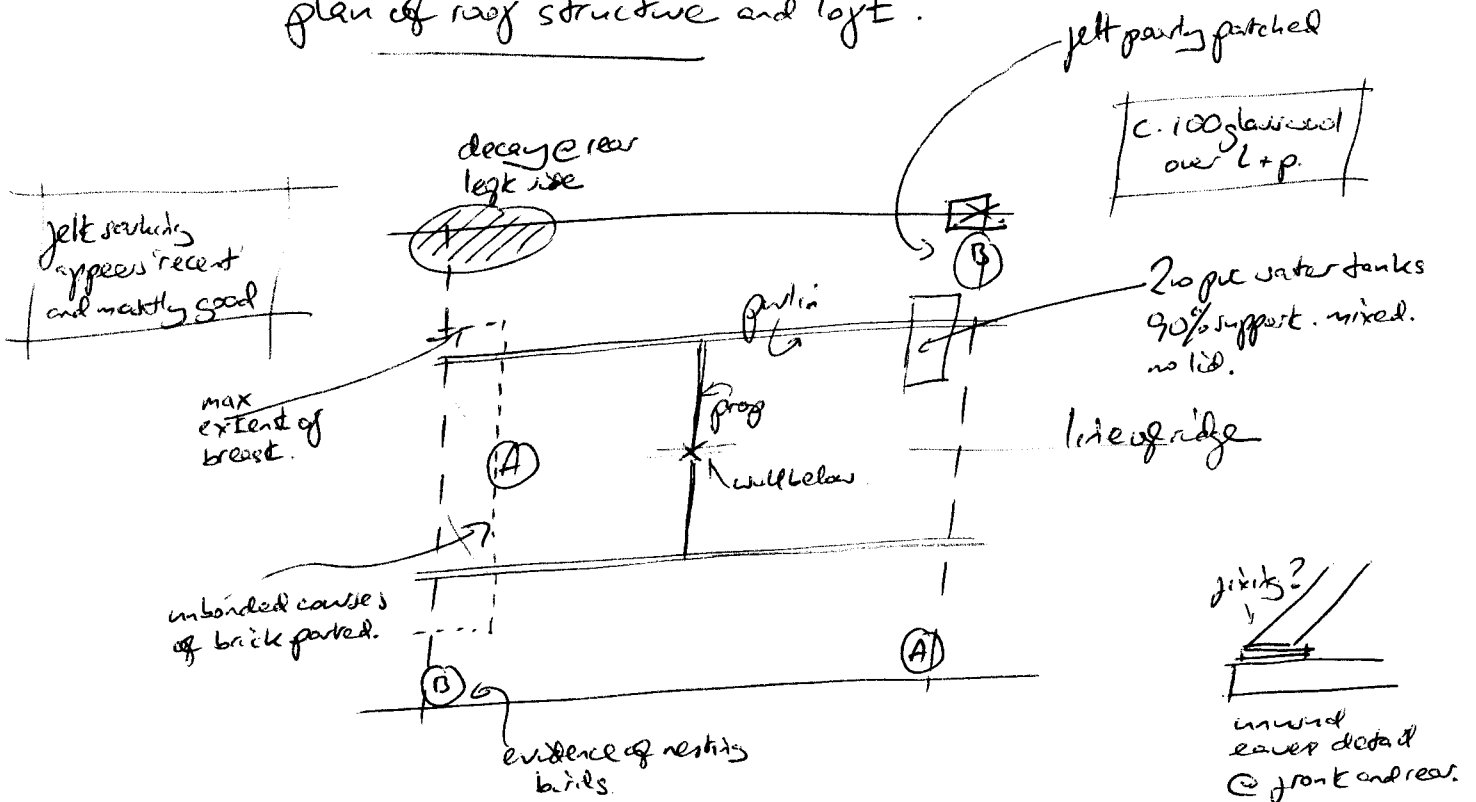 plan of roof structure and loft.
felt poorly patched
c. 100 glasswool
over l + p.
decay @ rear
left side
felt sarking
appears recent
and mostly good
B
2no pvc water tanks
90% support. mixed.
no lid.
purlin
max
extent of
breast.
prop
line of ridge
A
wall below
unbonded courses
of brick parted.
fixing?
A
B
evidence of nesting
birds.
unusual
eaves detail
@ front and rear.